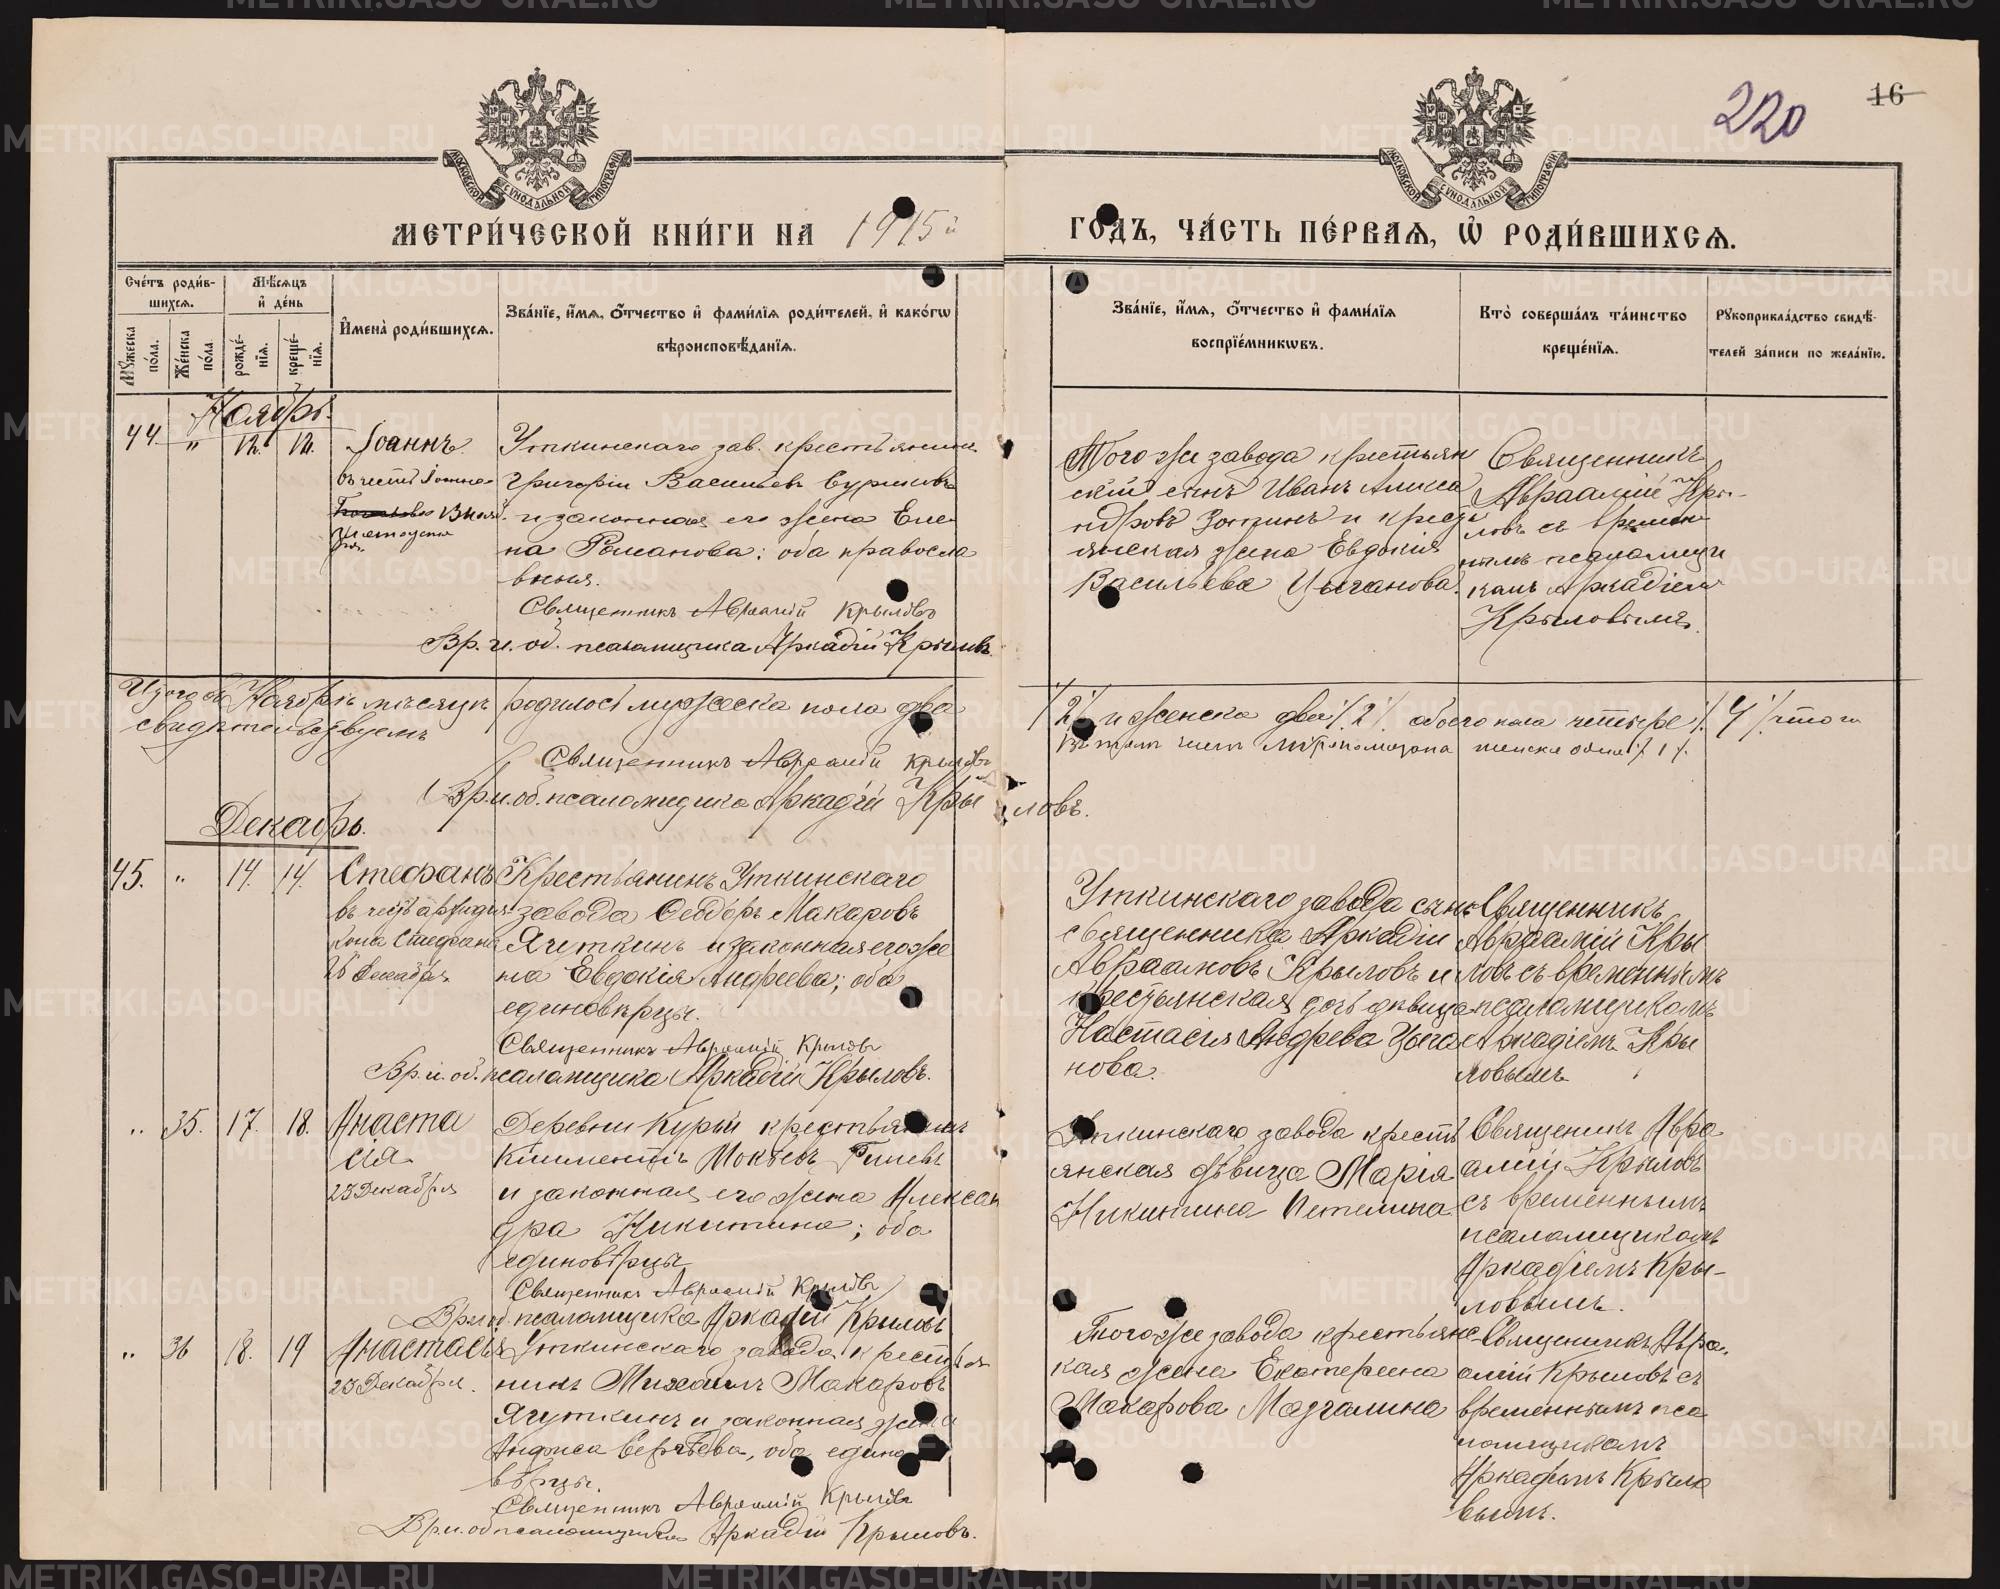 220
16
МОСКОВСКОЙ СѴНОДАЛЬНОЙ ТИПОГРАФІИ
МОСКОВСКОЙ СѴНОДАЛЬНОЙ ТИПОГРАФІИ
МЕТРИ́ЧЕСКОЙ КНИ́ГИ НА 1915й
ГО́ДЪ, ЧА́СТЬ ПЕ́РВАѦ, Ѡ҆ РОДИ́ВШИХСѦ.
Сче́тъ роди́в-
шихсѧ.
Мѣ́сѧцъ
и҆ де́нь
Мꙋ́жеска по́ла.
Же́нска по́ла.
рожде́-нїѧ.
креще́-нїѧ.
И҆мена̀ роди́вшихсѧ.
Зва́нїе, и҆́мѧ, ѻ҆́тчество и҆ фами́лїѧ роди́телей, и҆ како́гѡ
вѣроисповѣ́данїѧ.
Зва́нїе, и҆́мѧ, ѻ҆́тчество и҆ фами́лїѧ
воспрїе́мникѡвъ.
Кто̀ соверша́лъ та́инство
креще́нїѧ.
Рꙋкоприкла́дство свидѣ́-
телей за́писи по жела́нїю.
Ноябрь.
44. " 12. 12. Іоаннъ
Уткинскаго зав. крестьянин
Григорій Васильевъ Суриковъ
и законная его жена Еле
на Романова; оба правосла
вныя.
Священникъ Авраамій Крыловъ
Вр. и. об. псаломщика Аркадій Крыловъ
Того же завода крестьян
скій сынъ Иванъ Алекса
ндровъ Зотинъ и кресть
янская жена Евдокія
Васильева Цыганова.
Священникъ
Авраамій Кры-
ловъ съ времен
нымъ псаломщи
комъ Аркадіем
Крыловымъ.
Итого въ Ноябрѣ мѣсяцѣ родилось мужеска пола два
свидѣтельствуемъ
2 и женска две 2 обоего пола четыре 4 что и
Въ том числе женска одна 1
Священникъ Авраамій Крыловъ
Вр. и. об. псаломщика Аркадій Крыловъ.
Декабрь.
45. " 14. 14. Стефанъ
въ честь архидиа
кона Стефана
Декабря
Крестьянинъ Уткинскаго
завода Ѳеодоръ Макаровъ
Ячуткинъ и законная его же
на Евдокія Андреева; оба
единовѣрцы.
Священникъ Авраамій Крыловъ
Вр. и. об. псаломщика Аркадій Крыловъ.
Уткинскаго завода сынъ
священника Аркадій
Авраамовъ Крыловъ и
крестьянская дочь девица
Настасія Андрева Цыга
нова.
Священникъ
Авраамій Кры
ловъ съ временнымъ
псаломщикомъ
Аркадіемъ Кры
ловымъ
" 35. 17. 18. Анаста
сія
Декабря
Деревни Курьи крестьянинъ
Климентій Мокѣевъ
и законная его жена Алексан
дра Никитина; оба
единовѣрцы
Священникъ Авраамій Крыловъ
Вр. и об. псаломщика Аркадій Крыловъ
Уткинскаго завода кресть
янская дѣвица Марія
Никитина Петелина.
Священикъ Авра
амій Крыловъ
съ временнымъ
псаломщикомъ
Аркадіемъ Кры-
ловымъ.
" 36 18. 19 Анастасія
Декабря.
Уткинскаго завода крестья
нинъ Михаилъ Макаровъ
Ячуткинъ и законная жена
Анфиса Сергѣева, оба едино
вѣрцы.
Священникъ Авраамій Крыловъ
Вр. и. об псаломщика Аркадій Крыловъ.
Того же завода крестьянс
кая жена Екатерина
Макарова Мазгалина
Священикъ Авра
амій Крыловъ съ
временнымъ пса
ломщикомъ
Аркадіемъ Крыло
вымъ.
METRIKI.GASO-URAL.RU